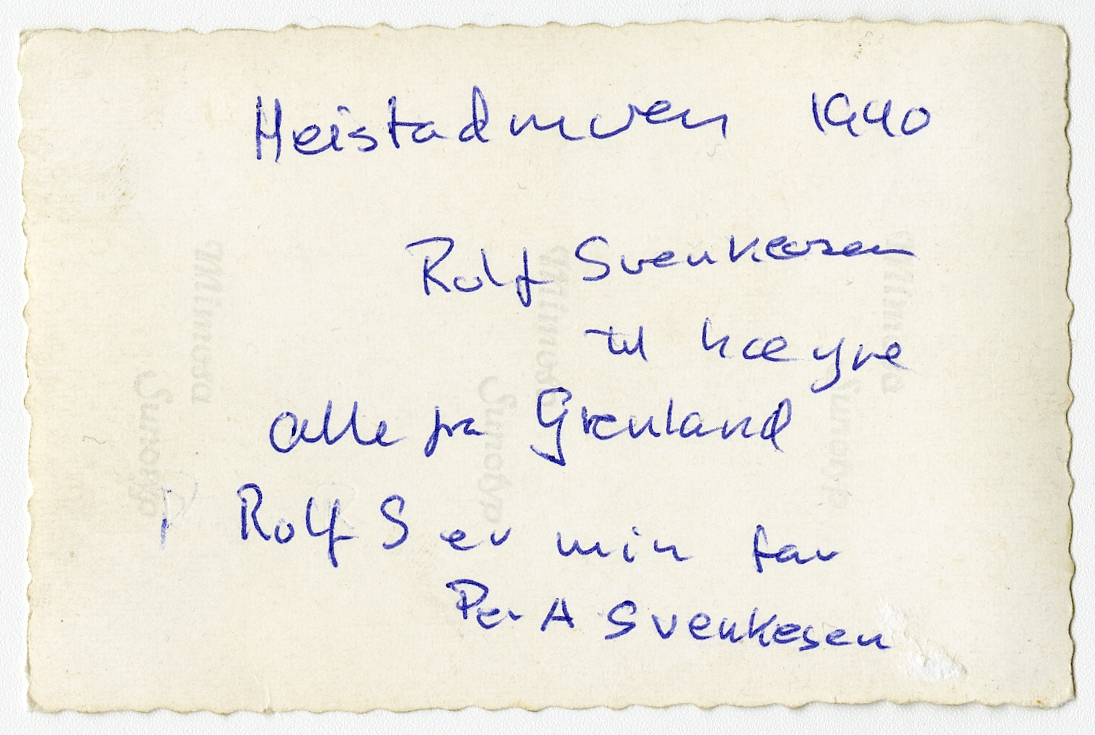 Heistadmoen 1940
Rolf Svenkesen
til høyre
alle fra Grenland
Rolf S er min far
Per A Svenkesen
Mimosa
Sunotyp
Mimosa
Sunotyp
Mimosa
Sunotyp